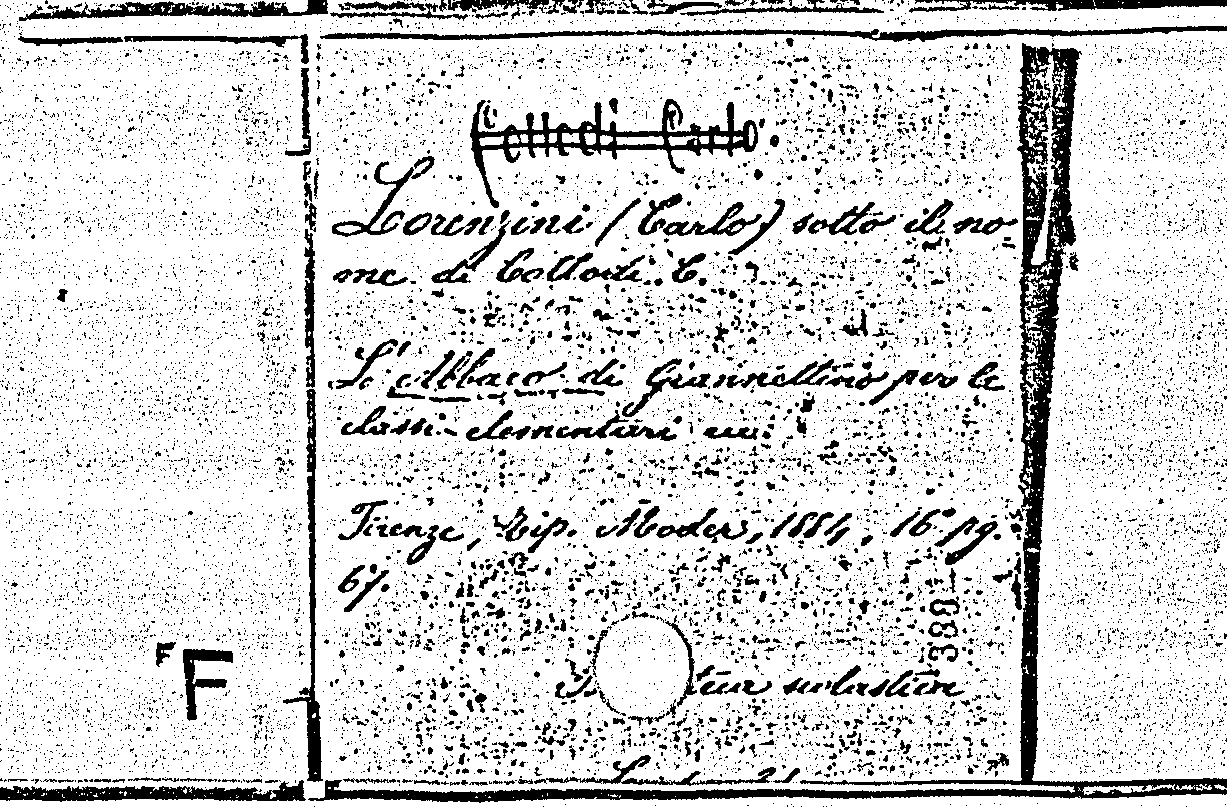 Collodi Carlo.
Lorenzini (Carlo) sotto il no
me di Collodi. C.
L'Abbaco di Giannettino per le
classi elementari
Firenze, Tip. Moder, 1884, 16° pg.
67.
388
scolastica
F
F